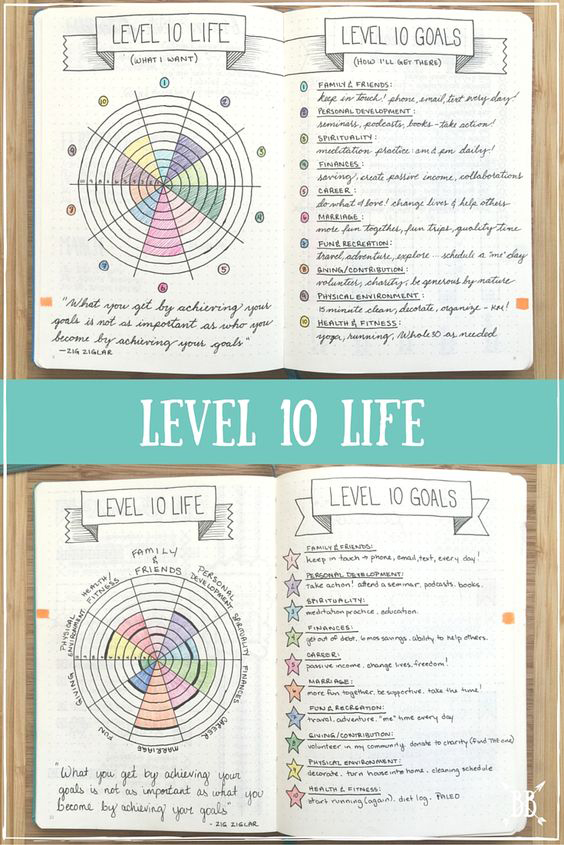 LEVEL 10 LIFE
(WHAT I WANT)
1
2
3
4
5
6
7
8
9
10
10 9 8 7 6 5 4 3 2 1
"What you get by achieving your
goals is not as important as who you
become by achieving your goals"
—ZIG ZIGLAR
LEVEL 10 GOALS
(HOW I'LL GET THERE)
1 FAMILY & FRIENDS:
keep in touch! phone, email, text every day!
2 PERSONAL DEVELOPMENT:
seminars, podcasts, books - take action!
3 SPIRITUALITY:
meditation practice: am & pm daily!
4 FINANCES:
saving, create passive income, collaborations
5 CAREER:
do what I love! change lives & help others
6 MARRIAGE:
more fun together, fun trips, quality time
7 FUN & RECREATION:
travel, adventure, explore... schedule a "me" day
8 GIVING/CONTRIBUTION:
volunteer, charity, be generous by nature
9 PHYSICAL ENVIRONMENT:
15 minute clean, decorate, organize - KM!
10 HEALTH & FITNESS:
yoga, running, Whole 30 as needed
LEVEL 10 LIFE
LEVEL 10 LIFE
FAMILY
&
FRIENDS
PERSONAL
DEVELOPMENT
SPIRITUALITY
FINANCES
CAREER
MARRIAGE
FUN
GIVING
PHYSICAL
ENVIRONMENT
HEALTH/
FITNESS
"What you get by achieving your
goals is not as important as what you
become by achieving your goals"
- ZIG ZIGLAR
LEVEL 10 GOALS
1 FAMILY & FRIENDS:
keep in touch → phone, email, text, every day!
2 PERSONAL DEVELOPMENT:
Take action! attend a seminar, podcasts, books.
3 SPIRITUALITY:
meditation practice. education.
4 FINANCES:
get out of debt, 6 mos savings, ability to help others.
5 CAREER:
passive income, change lives, freedom!
6 MARRIAGE:
more fun together, be supportive, take the time!
7 FUN & RECREATION:
travel, adventure, "me" time every day
8 GIVING/CONTRIBUTION:
volunteer in my community, donate to charity (find the one)
9 PHYSICAL ENVIRONMENT:
decorate. turn house into home. cleaning schedule
10 HEALTH & FITNESS:
start running (again). diet log. PALEO
BB